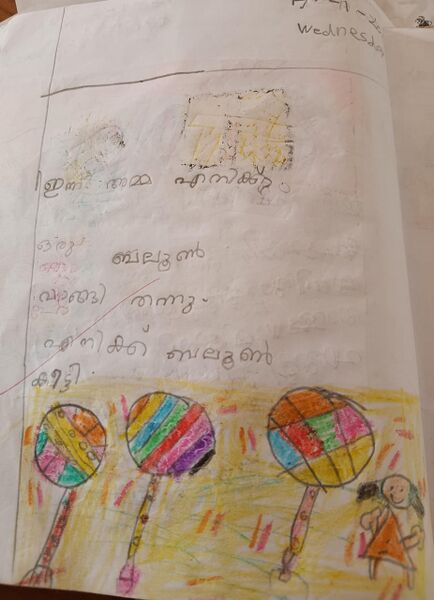 Wednesday
ഇന്ന് അമ്മ എനിക്ക്
ഒരു ബലൂൺ
വാങ്ങി തന്നു.
എനിക്ക് ബലൂൺ
കിട്ടി.